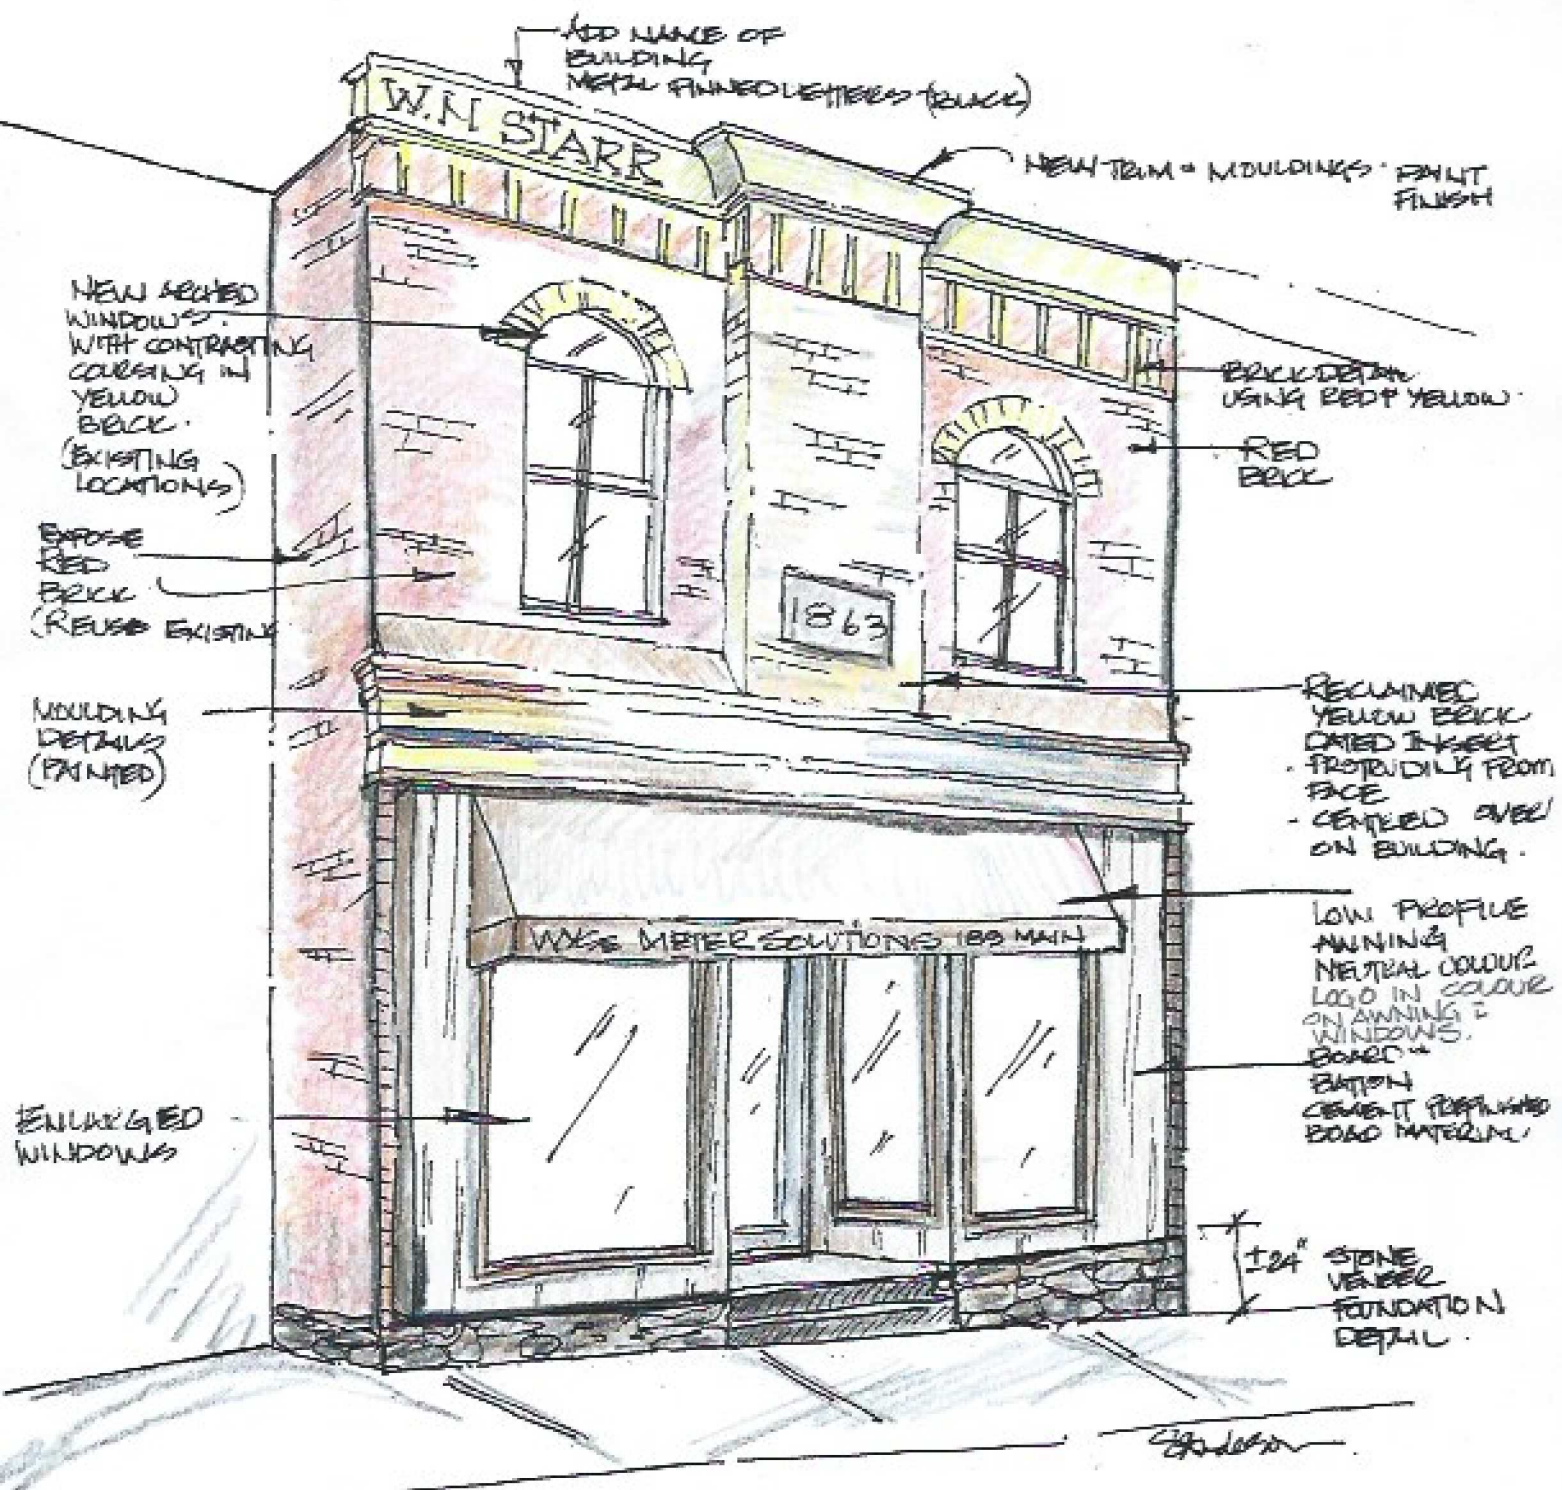 ADD NAME OF
BUILDING
METAL PINNED LETTERS (BLACK)
W.N STARR
NEW TRIM + MOULDINGS · PAINT
FINISH
NEW ARCHED
WINDOWS.
WITH CONTRASTING
COURSING IN
YELLOW
BRICK.
(EXISTING
LOCATIONS)
BRICK DETAIL
USING RED & YELLOW.
RED
BRICK
EXPOSE
RED
BRICK
(REUSE EXISTING
1863
MOULDING
DETAILS
(PAINTED)
RECLAIMED
YELLOW BRICK
DATED INSERT
- PROTRUDING FROM
FACE
- CENTERED OVER
ON BUILDING.
WYSE METER SOLUTIONS 189 MAIN
LOW PROFILE
AWNING
NEUTRAL COLOUR
LOGO IN COLOUR
ON AWNING &
WINDOWS.
BOARD +
BATTON
CEMENT PREFINISHED
BOAD MATERIAL.
ENLARGED
WINDOWS
±24" STONE
VENEER
FOUNDATION
DETAIL.